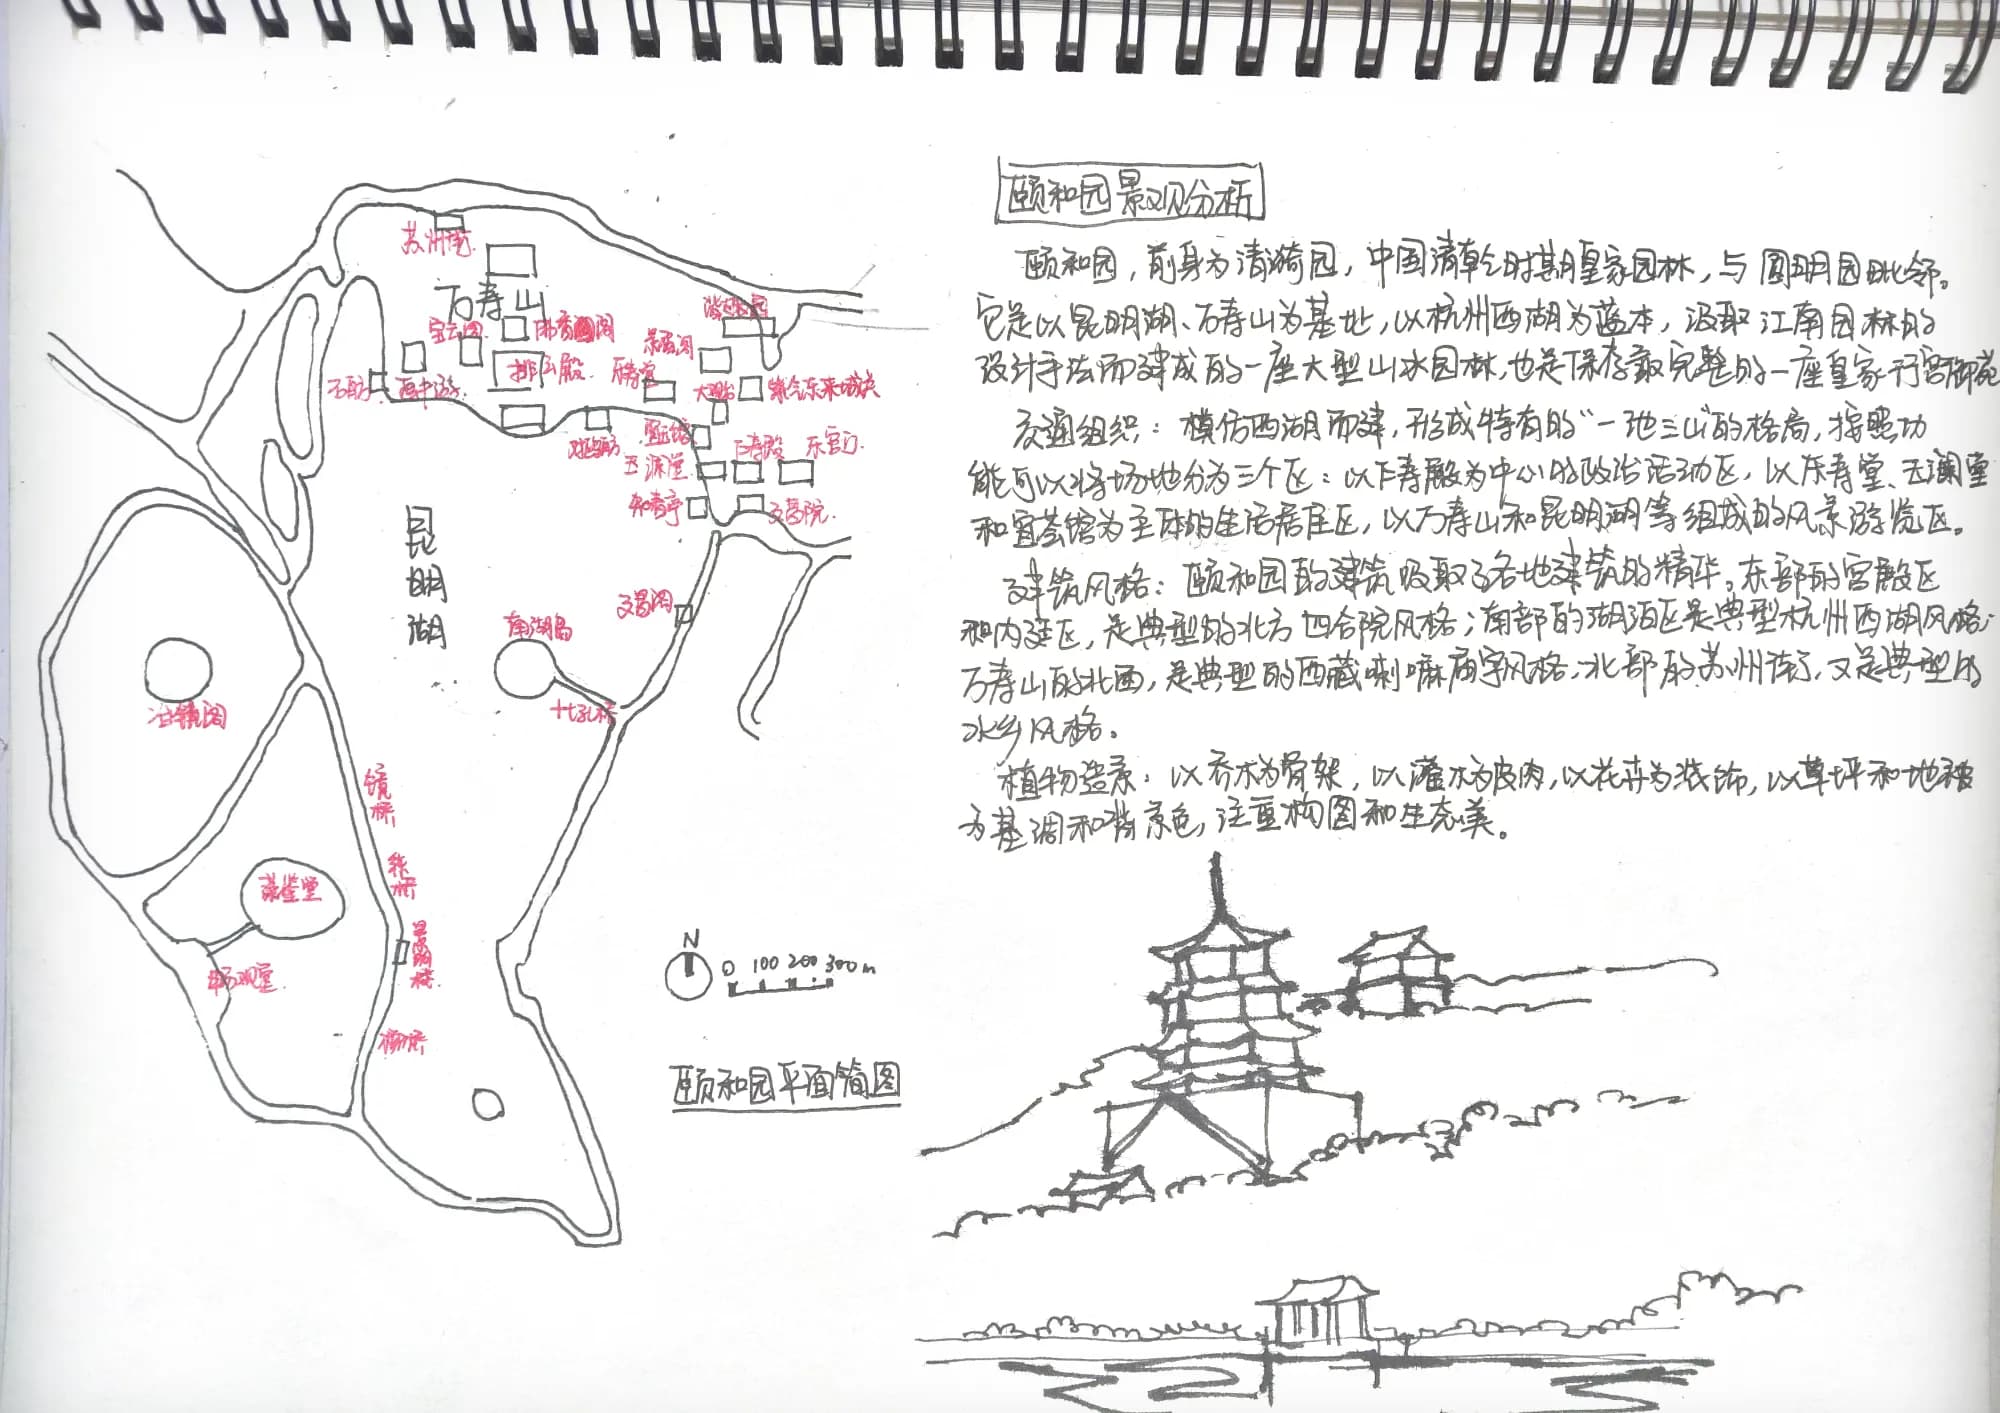 颐和园景观分析
颐和园，前身为清漪园，中国清乾时期皇家园林，与圆明园毗邻。
它是以昆明湖、万寿山为基址，以杭州西湖为蓝本，汲取江南园林的
设计手法而建成的一座大型山水园林，也是保存最完整的一座皇家行宫御苑
交通组织：模仿西湖而建，形成特有的"一池三山"的格局，按照功
能可以将场地分为三个区：以仁寿殿为中心的政治活动区，以乐寿堂、玉澜堂
和宜芸馆为主体的生活居住区，以万寿山和昆明湖等组成的风景游览区。
建筑风格：颐和园的建筑吸取了各地建筑的精华。东部的宫殿区
和内廷区，是典型的北方四合院风格；南部的湖泊区是典型杭州西湖风格；
万寿山的北面，是典型的西藏喇嘛庙宇风格；北部的苏州街，又是典型的
水乡风格。
植物造景：以乔木为骨架，以灌木为皮肉，以花卉为装饰，以草坪和地被
为基调和背景色，注重构图和生态美。
苏州街
万寿山
谐趣园
宝云阁
佛香阁
景福阁
石舫
画中游
排云殿
乐寿堂
大戏台
紫气东来城关
对鸥舫
宜芸馆
玉澜堂
仁寿殿
东宫门
知春亭
文昌院
昆明湖
文昌阁
南湖岛
十七孔桥
治镜阁
镜桥
练桥
藻鉴堂
畅观堂
柳桥
N
0 100 200 300m
颐和园平面简图